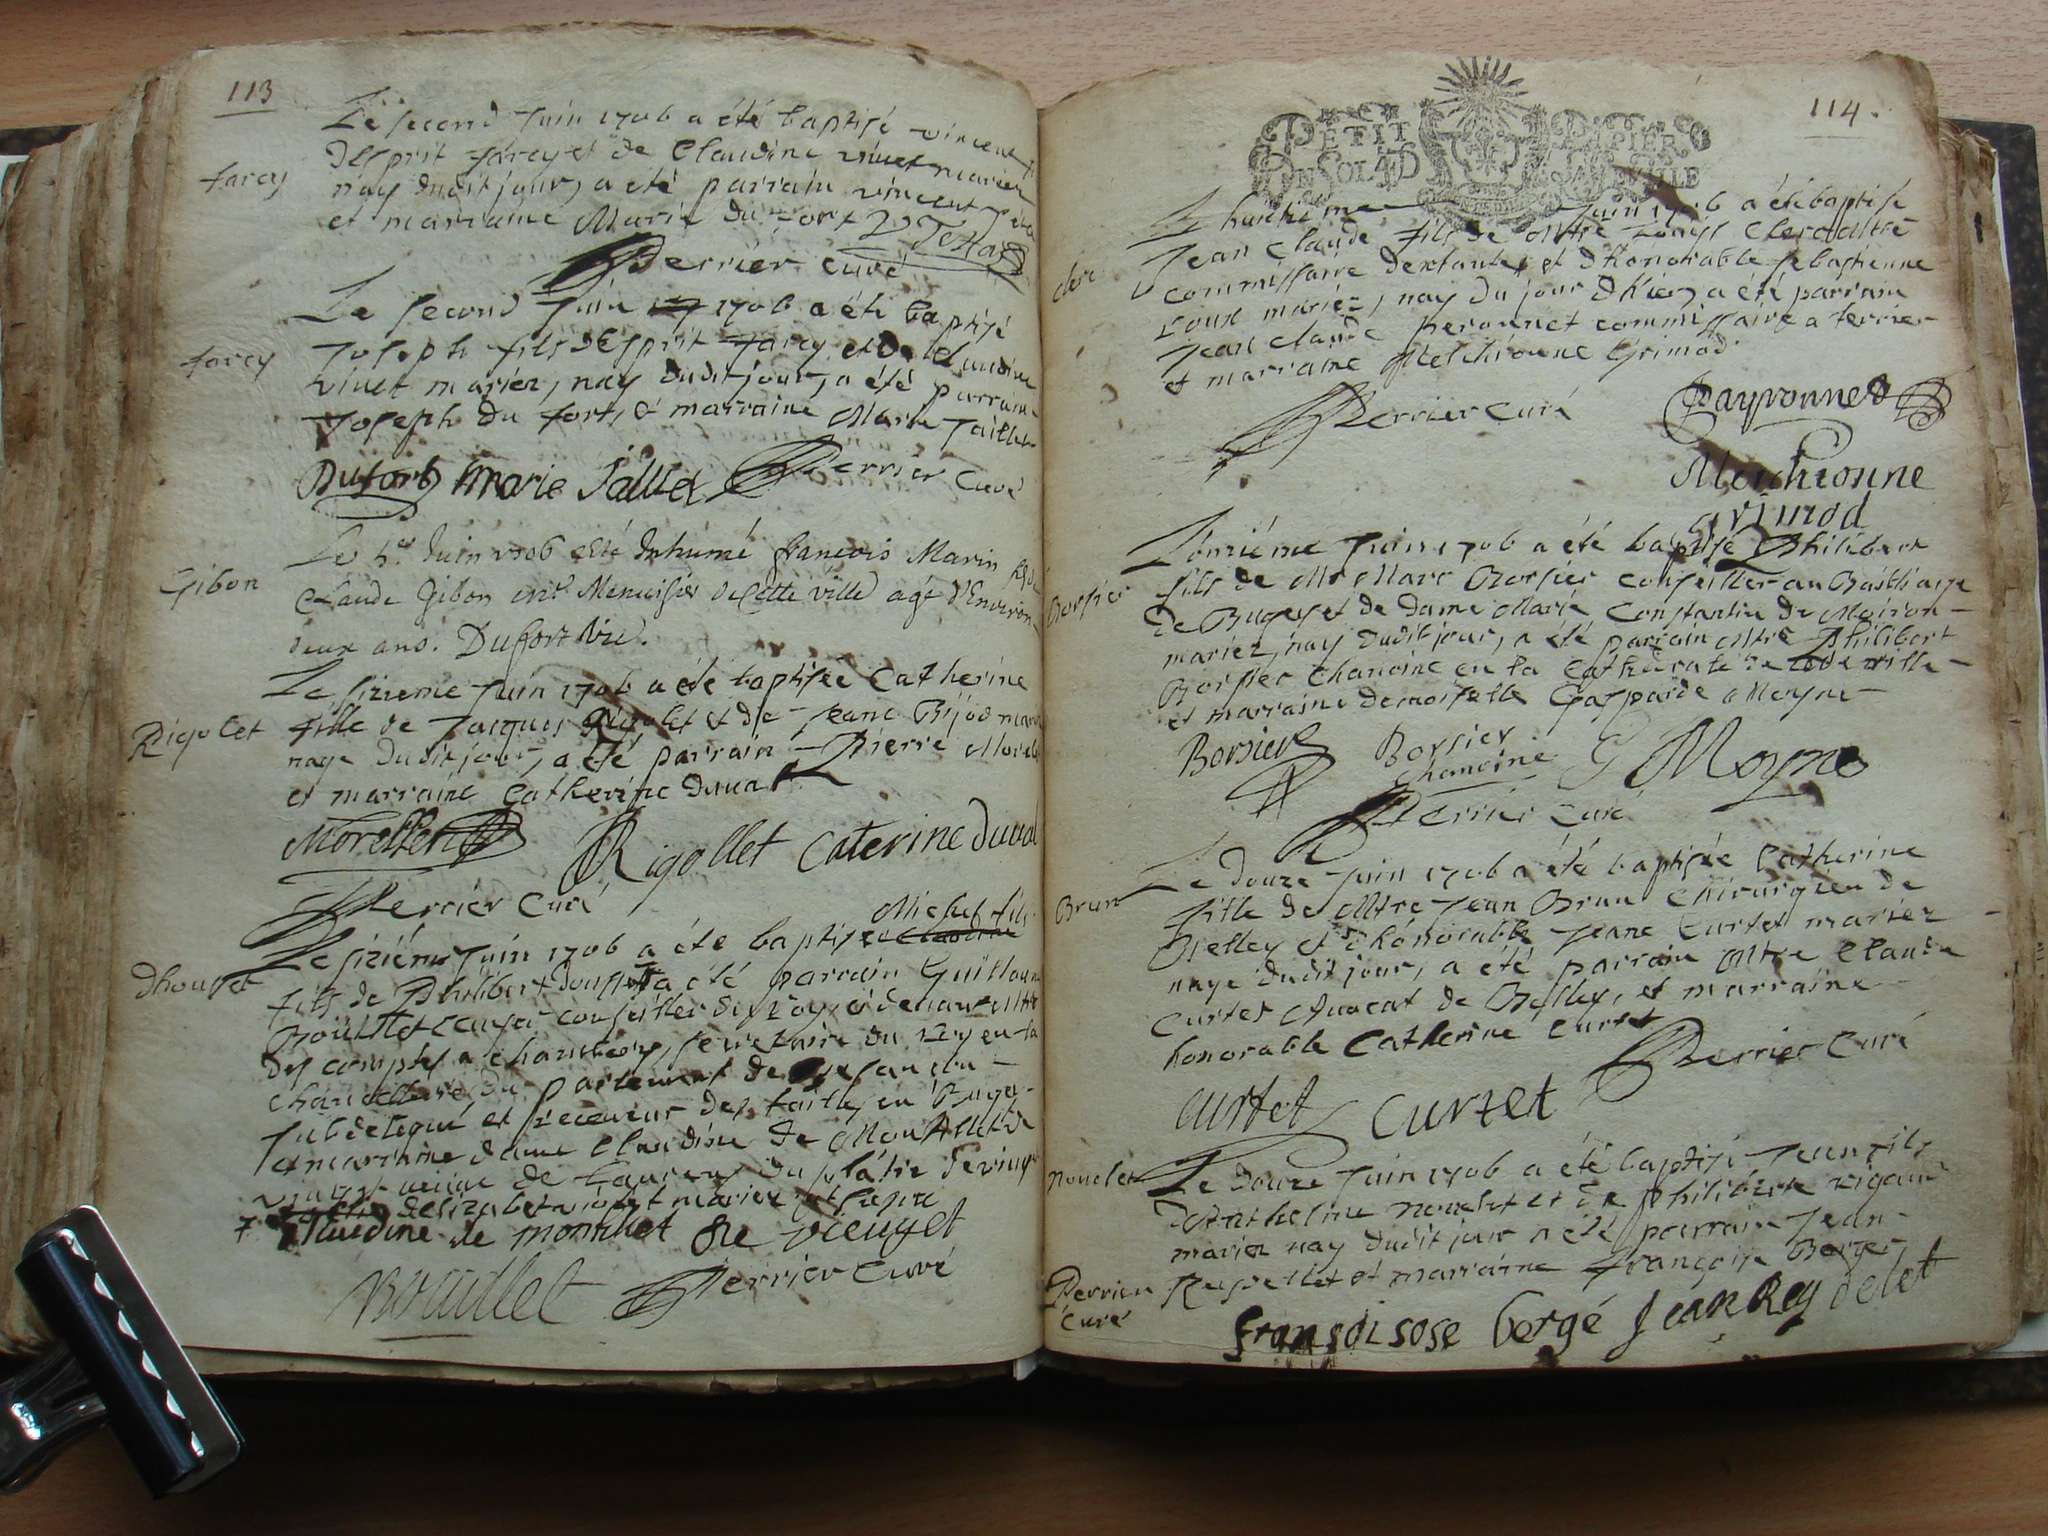 113
Le second Juin 1706 a été baptisé vincent
d'Esprit farcy et de Claudine vinet mariez
farcy
nay dudit jour, a eté parrain vincent
et marraine Marie du fort
Perrier curé
Le second Juin 1706 a été baptisé
Joseph fils d'Esprit farcy et de Claudine
farcy
vinet mariez, nay dudit jour, a été parrain
Joseph du fort, et marraine Marie Jaillet
Dufort Marie Jalliet Perrier Curé
Le Juin 1706 esté Inhumé françois Marin fils de
Gibon
Claude Gibon Menuisier de Cette ville agé d'Environ
deux ans. Duffort Vic.
Le sizieme Juin 1706 a été baptisée Catherine
Rigolet
fille de Jacques Rigolet et de Jeane Bijod
naye dudit jour, a été parrain Pierre
et marraine Catherine duval
Rigollet Caterine duval
Perrier Curé
Michel fils
Le sizième Juin 1706 a été baptisé
dhouset
fils de Philibert a été parrain Guillaume
Bouillet conseiller du Roy,
des comptes a chambery, secretaire du Roy en la
chancellerie du parlement de Besancon
subdelegué et receveur des tailles en Bugey
et marraine dame Claudine de
du platre
delizabet mariez
Claudine de montillet de vieuget
Bouillet Perrier Curé
114.
PETIT PAPIER
UN SOL 4 D LA FEUILLE
Le huictieme Juin 1706 a été baptisé
Jean Claude fils de Mtre Clerc
clerc
commissaire et d'honorable Sebastienne
roux mariez, nay du jour d'hier, a été parrain
Jean Claude Peronnet commissaire a terrier
et marraine Melchionne Grimod
Perrier Curé
Payronnet
Melchionne
grimod
L'onzième Juin 1706 a été baptisé Philibert
fils de Mr Marc Borsier conseiller au Bailliage
Borsier
de Bugey et de dame Marie Constantin de Moiron
mariez, nay dudit jour, a été parrain Mtre Philibert
Borsier Chanoine en la Cathedrale de cette ville
et marraine demoiselle Gasparde Moyne
Borsier
Borsier
Chanoine
G Moyne
Perrier Curé
Le douze Juin 1706 a été baptisée Catherine
Brun
fille de Mtre Jean Brun Chirurgien de
Belley et d'honorable Jeane Curtet mariez
naye dudit jour, a été parrain Mtre Claude
Curtet Avocat de Belley, et marraine
honorable Catherine Curtet
Perrier Curé
Curtet Curtet
Le douze Juin 1706 a été baptisé Jean fils
Nouelet
d'Anthelme Nouelet et de Philiberte rigaud
mariez nay dudit jour a été parrain Jean
Reydellet et marraine françoise Berger
Perrier
Curé
fransoisose bergé Jean Rey delet